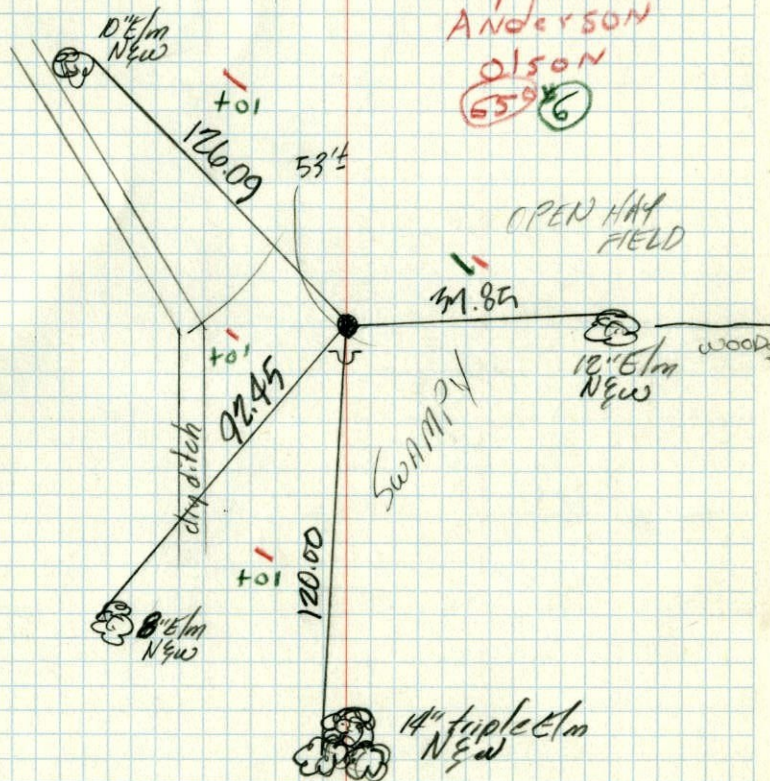 10" Elm
N&W
Anderson
Olson
+01
126.09
53'±
OPEN HAY
FIELD
12" Elm
N&W
WOODS
+01
92.45
dry ditch
SWAMPY
+01
120.00
8" Elm
N&W
14" triple Elm
N&W